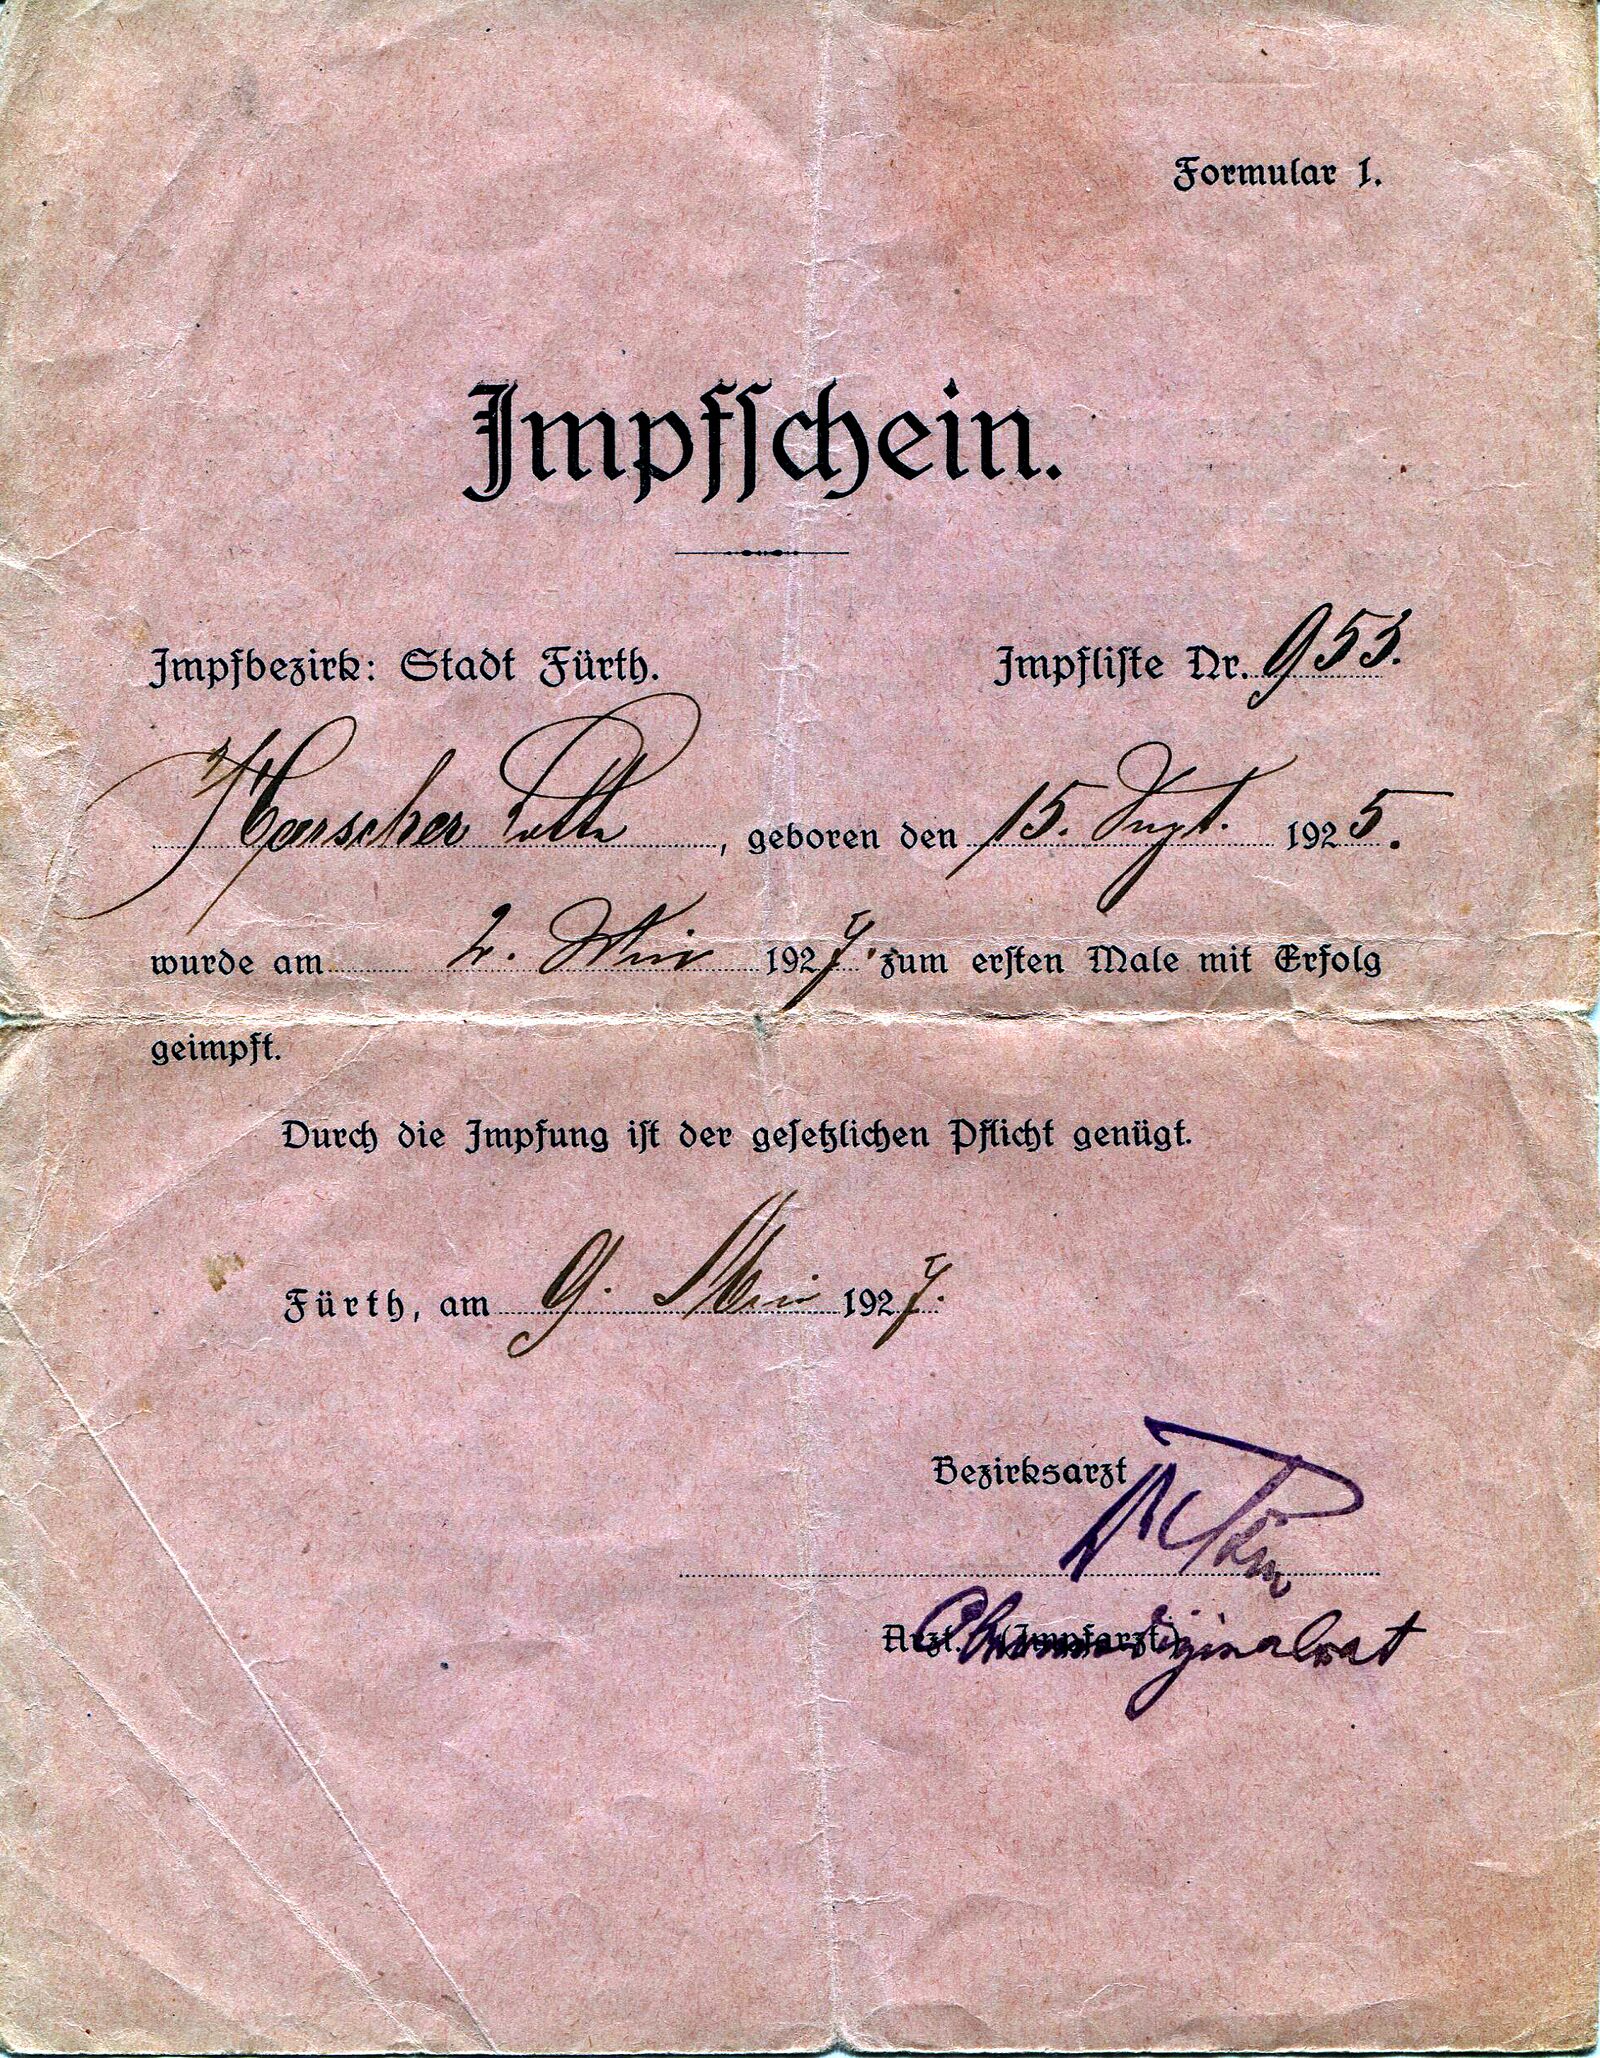 Formular 1.
Impfschein.
Impfbezirk: Stadt Fürth. Impfliste Nr. 953.
Lotte, geboren den 15. Sept. 1925.
wurde am 2. Mai 1927. zum ersten Male mit Erfolg
geimpft.
Durch die Impfung ist der gesetzlichen Pflicht genügt.
Fürth, am 9. Mai 1927.
Bezirksarzt
Arzt. (Impfarzt)